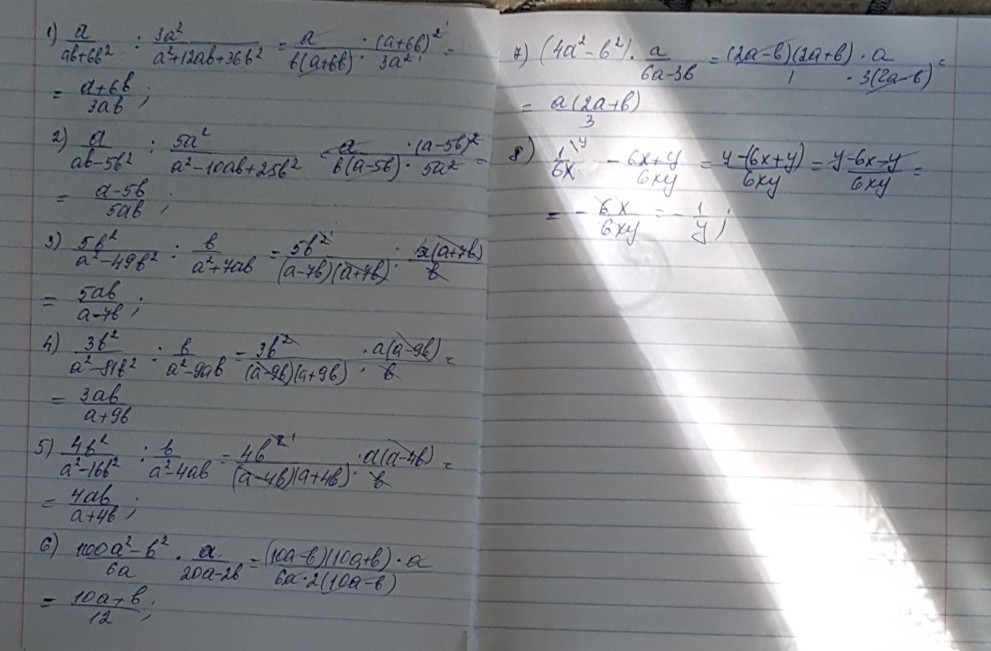 1) a/(ab+6b²) : 3a²/(a²+12ab+36b²) = a/(b(a+6b)) · (a+6b)²/3a² =
= (a+6b)/3ab ;
2) a/(ab-5b²) : 5a²/(a²-10ab+25b²) = a/(b(a-5b)) · (a-5b)²/5a² =
= (a-5b)/5ab ;
3) 5b²/(a²-49b²) : b/(a²+7ab) = 5b²/((a-7b)(a+7b)) · a(a+7b)/b
= 5ab/(a-7b) ;
4) 3b²/(a²-81b²) : b/(a²-9ab) = 3b²/((a-9b)(a+9b)) · a(a-9b)/b =
= 3ab/(a+9b)
5) 4b²/(a²-16b²) : b/(a²-4ab) = 4b²/((a-4b)(a+4b)) · a(a-4b)/b =
= 4ab/(a+4b) ;
6) (100a²-b²)/6a · a/(20a-2b) = (10a-b)(10a+b)·a/(6a·2(10a-b))
= (10a+b)/12 ;
7) (4a²-b²) · a/(6a-3b) = (2a-b)(2a+b)·a/(1·3(2a-b)) =
= a(2a+b)/3
8) 1/6x \y - (6x+y)/6xy = (y-(6x+y))/6xy = (y-6x-y)/6xy =
= - 6x/6xy = - 1/y ;